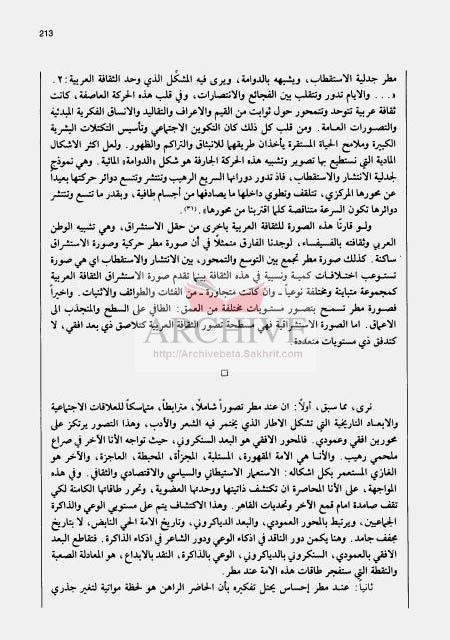 213
مطر جدلية الاستقطاب، ويشبهه بالدوامة، ويرى فيه المشكّل الذي وحد الثقافة العربية: ٢.
«... والايام تدور وتتقلب بين الفجائع والانتصارات، وفي قلب هذه الحركة العاصفة، كانت
ثقافة عربية تتوحد وتتمحور حول ثوابت من القيم والاعراف والتقاليد والانساق الفكرية المبدئية
والتصورات العامة. ومن قلب كل ذلك كان التكوين الاجتماعي وتأسيس التكتلات البشرية
الكبيرة وملامح الحياة المستقرة يأخذان طريقهما للانبثاق والتراكم والظهور. ولعل اكثر الاشكال
المادية التي نستطيع بها تصوير وتشبيه هذه الحركة الجارفة هو شكل «الدوامة» المائية. وهي نموذج
لجدلية الانتشار والاستقطاب، فاذ تدور دوراتها السريع الرهيب وتنتشر وتتسع دوائر حركتها بعيداً
عن محورها المركزي، تتلقف وتطوي داخلها ما يصادفها من أجسام طافية، وبقدر ما تتسع وتنتشر
دوائرها تكون السرعة متناقصة كلما اقتربنا من محورها» (٣١).
ولو قارنّا هذه الصورة للثقافة العربية باخرى من حقل الاستشراق، وهي تشبيه الوطن
العربي وثقافته بالفسيفساء، لوجدنا الفارق متمثلاً في أن صورة مطر حركية وصورة الاستشراق
ساكنة. كذلك صورة مطر تجمع بين التوسع والتمحور، بين الانتشار والاستقطاب اي هي صورة
تستوعب اختلافات كمية ونسبية في هذه الثقافة بينما تقدم صورة الاستشراق الثقافة العربية
كمجموعة متباينة ومختلفة نوعياً ـ وان كانت متجاورة ـ من الفئات والطوائف والاثنيات. واخيراً
فصورة مطر تسمح بتصور مستويات مختلفة من العمق: الطافي على السطح والمنجذب الى
الاعماق. اما الصورة الاستشراقية فهي مسطحة تصور الثقافة العربية كتلاصق ذي بعد افقي، لا
كتدفق ذي مستويات متعددة.
ARCHIVE
http://Archivebeta.Sakhrit.com
نرى، مما سبق، أولاً: ان عند مطر تصوراً شاملاً، مترابطاً، متماسكاً للعلاقات الاجتماعية
والابعاد التاريخية التي تشكل الاطار الذي يختمر فيه الشعر والأدب، وهذا التصور يرتكز على
محورين افقي وعمودي. فالمحور الافقي هو البعد السنكروني، حيث تواجه الأنا الآخر في صراع
ملحمي رهيب. والأنا هي الامة المقهورة، المستلبة، المجزأة، المحبطة، العاجزة، والآخر هو
الغازي المستعمر بكل اشكاله: الاستعمار الاستيطاني والسياسي والاقتصادي والثقافي. وفي هذه
المواجهة، على الأنا المحاصرة ان تكتشف ذاتيتها ووحدتها العضوية، وتحرر طاقاتها الكامنة لكي
تقف صامدة امام قمع الآخر وتحديات القاهر. وهذا الاكتشاف يتم على مستويي الوعي والذاكرة
الجماعيين، ويرتبط بالمحور العمودي، والبعد الدياكروني، وتاريخ الامة الحي النابض، لا بتاريخ
مجفف جامد. وهنا يكمن دور الناقد في اذكاء الوعي ودور الشاعر في اذكاء الذاكرة. فتقاطع البعد
الافقي بالعمودي، السنكروني بالدياكروني، الوعي بالذاكرة، النقد بالابداع، هو المعادلة الصعبة
والنقطة التي ستفجر طاقات هذه الامة عند مطر.
ثانياً: عند مطر إحساس يحتل تفكيره بأن الحاضر الراهن هو لحظة مواتية لتغير جذري